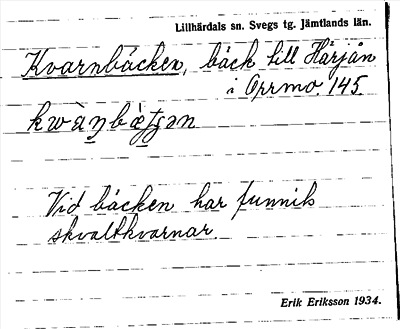 Lillhärdals sn. Svegs tg. Jämtlands län.
Kvarnbäcken, bäck till Härjån
i Orrmo. 145.
Vid bäcken har funnits
skvaltkvarnar.
Erik Eriksson 1934.